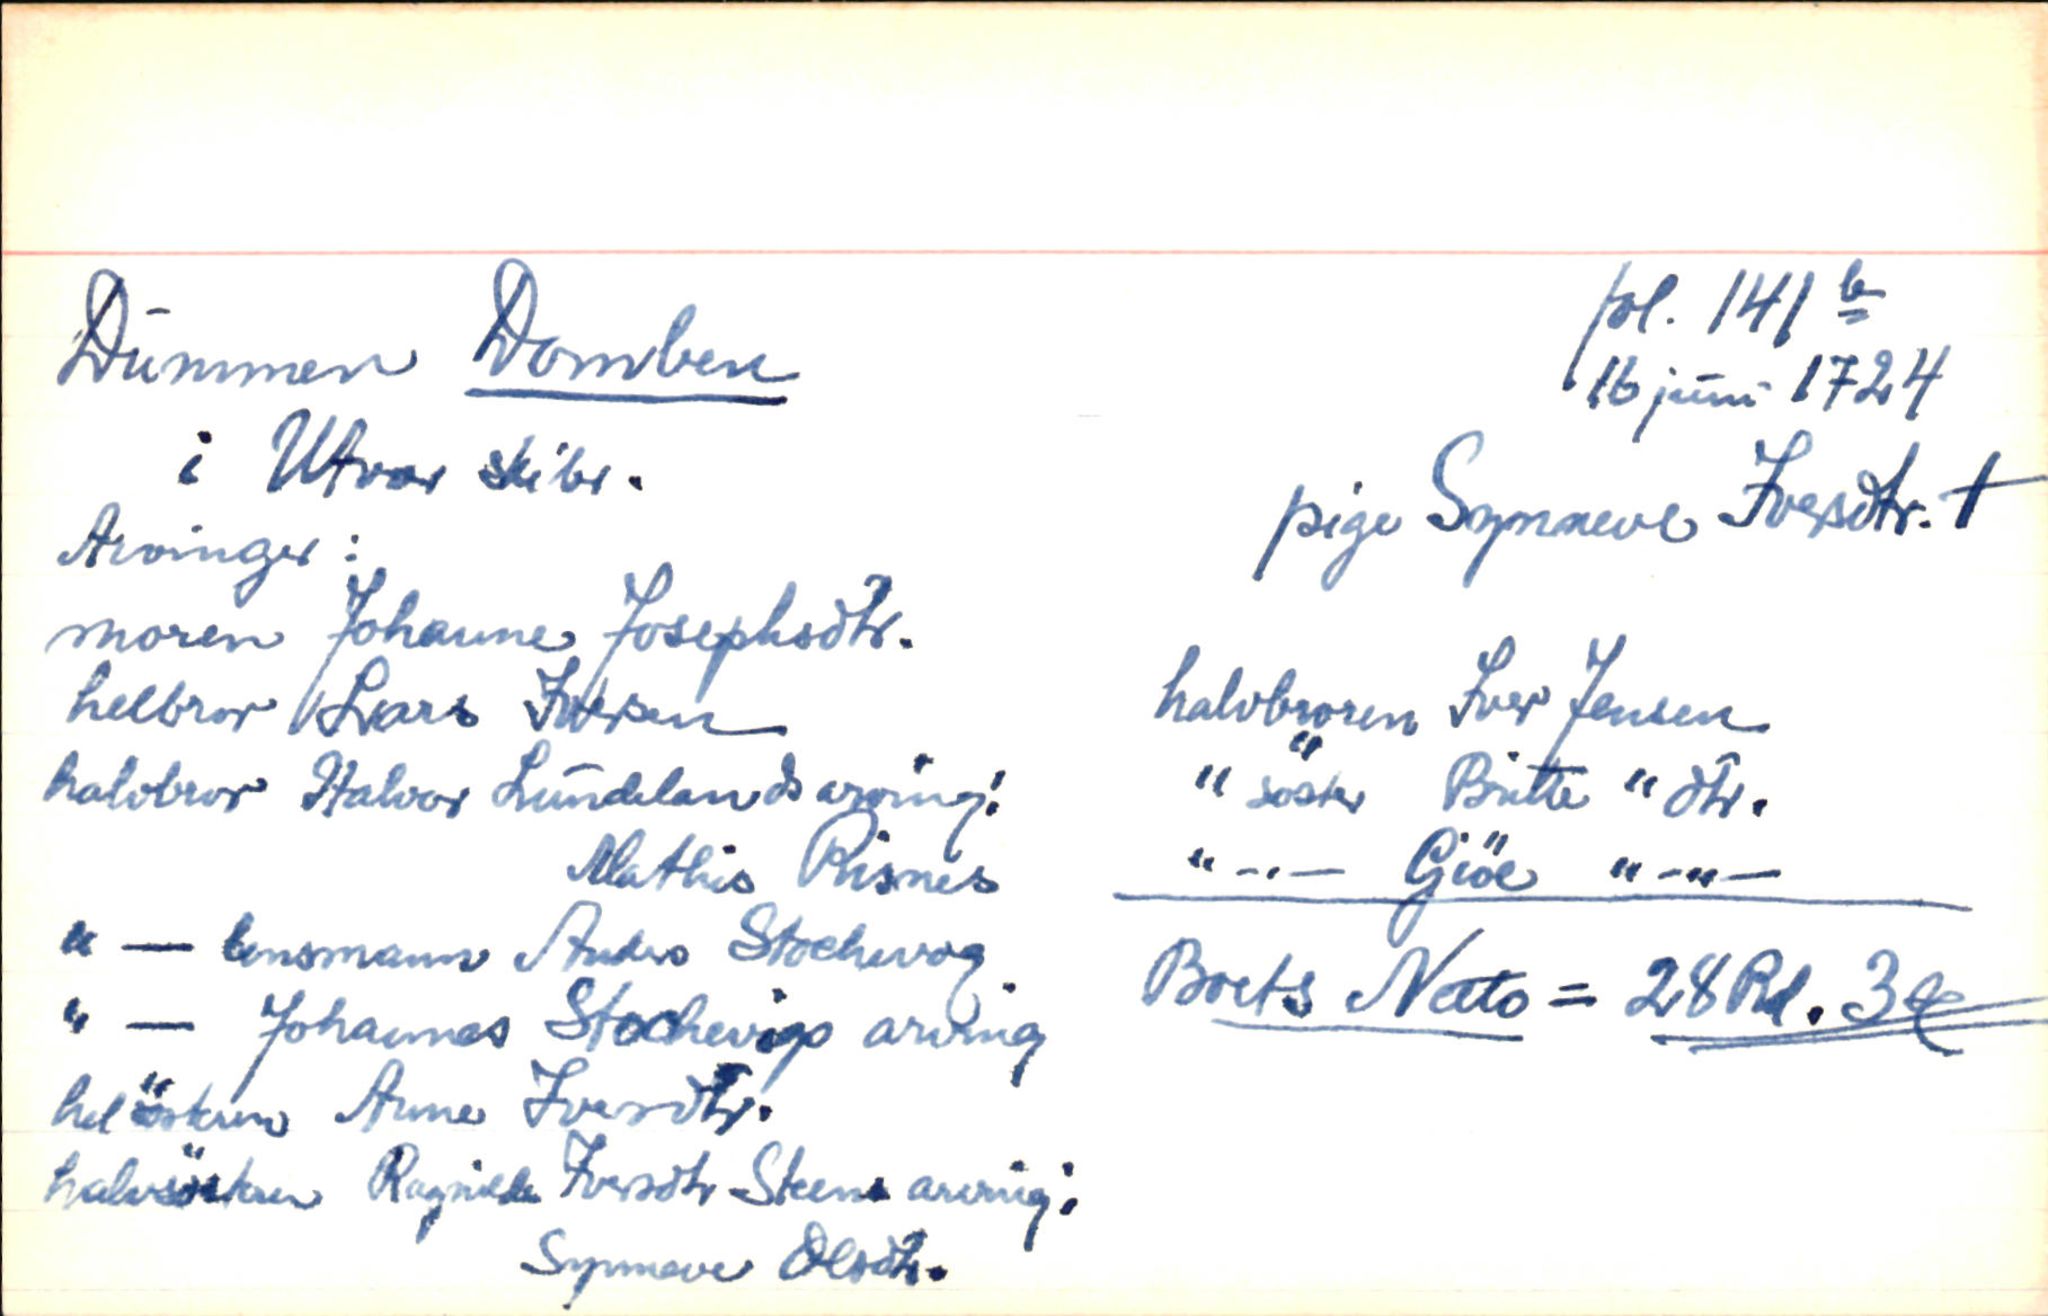 Dümmen Domben
fol. 141 b
16 juni 1724
i Utvær skibr.
pige Synneve Iversdtr. †
Arvinger:
moren Johanne Josephsdtr.
helbror Lars Iversen
halvbror Halvor Lündelands arving:
Mathis Risnes
" — lensmann Anders Stochevog
" — Johannes Stochevigs arving
helsösteren Anne Iversdtr.
halvsösteren Ragnilde Iversdtr Steens arving:
Synneve Olsdtr.
halvbroren Iver Jensen
" söster Britte " dtr.
" -"- Giöe " -"-
Boets Netto = 28 Rd. 3